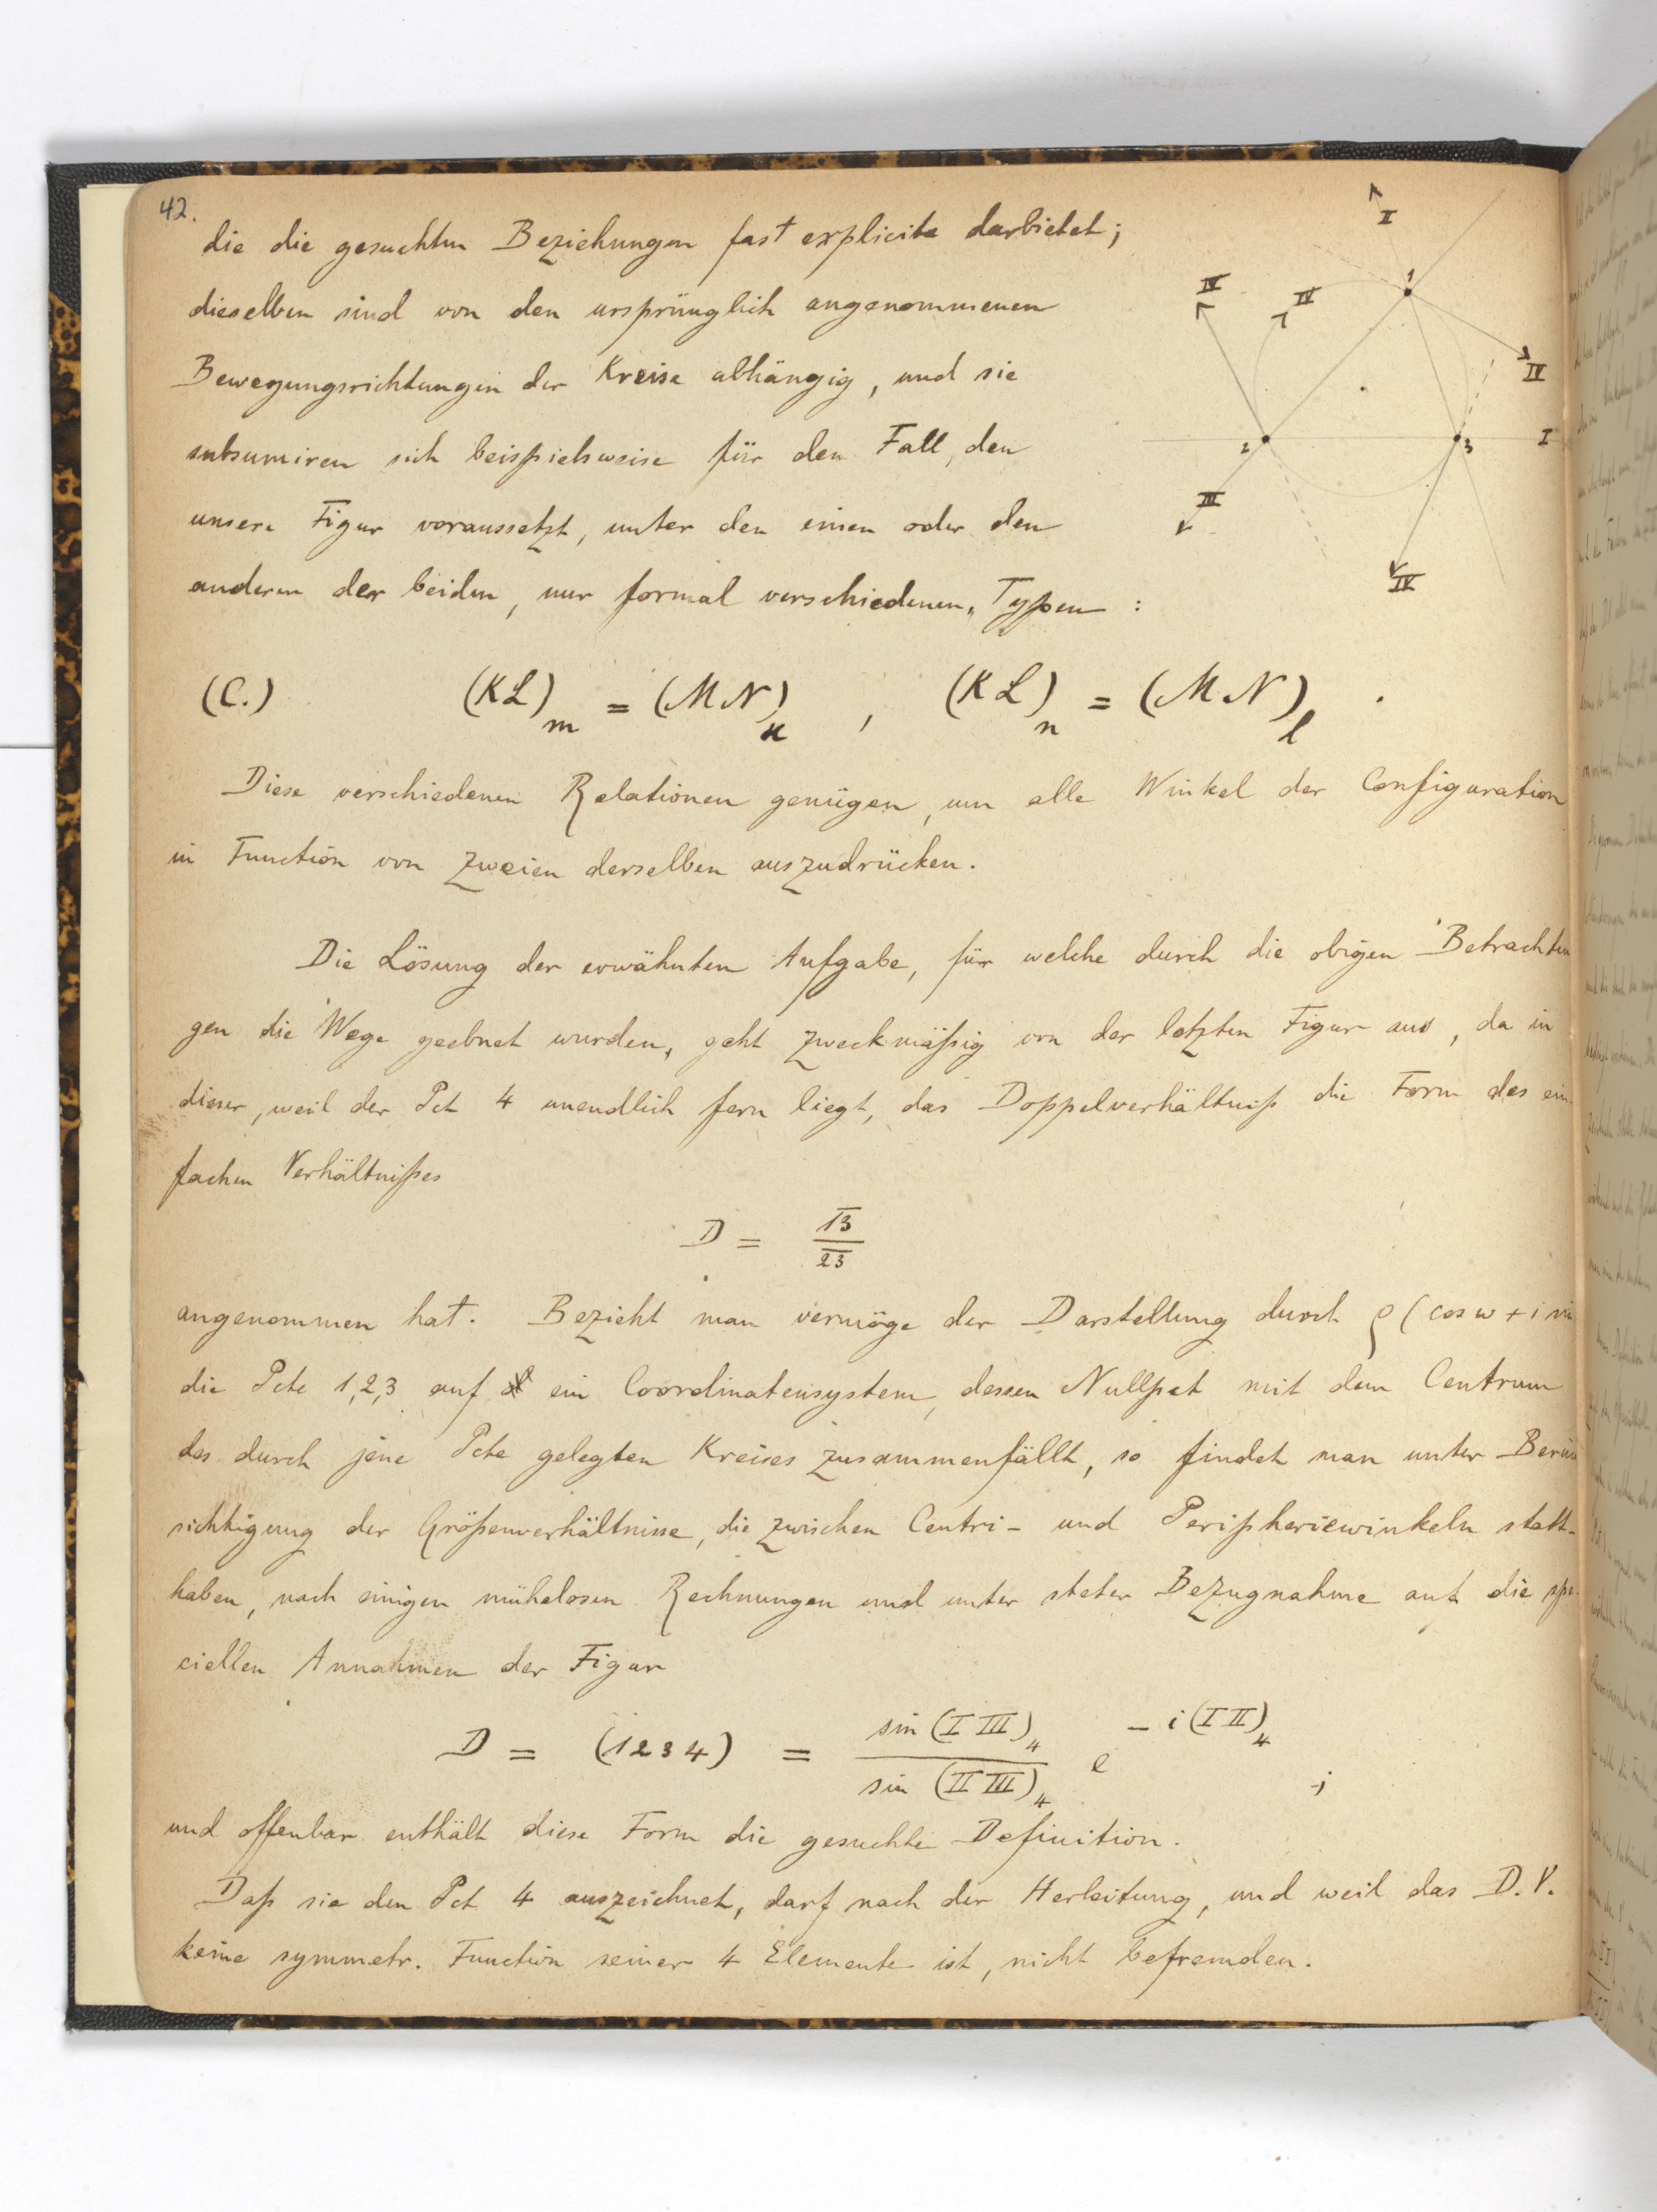 42.
die die gesuchten Beziehungen fast explicite darbietet;
dieselben sind von den ursprünglich angenommenen
Bewegungsrichtungen der Kreise abhängig, und sie
subsumiren sich beispielsweise für den Fall, den
unsere Figur voraussetzt, unter den einen oder den
anderen der beiden, nur formal verschiedenen, Typen :
II
1
IV
IV
IV
2
3
I
III
IV
(C.) (KL)m = (MN)k , (KL)n = (MN)l .
Diese verschiedenen Relationen genügen, um alle Winkel der Configuration
in Function von zweien derselben auszudrücken.
Die Lösung der erwähnten Aufgabe, für welche durch die obigen Betrachtun
gen die Wege geebnet wurden, geht zweckmäßig von der letzten Figur aus, da in
dieser, weil der Pct 4 unendlich fern liegt, das Doppelverhältniß die Form des ein
fachen Verhältnißes
D = 13/23
angenommen hat. Bezieht man vermöge der Darstellung durch ρ (cos w + i sin
die Pcte 1,2,3 auf ein Coordinatensystem, dessen Nullpct mit dem Centrum
des durch jene Pcte gelegten Kreises zusammenfällt, so findet man unter Berück
sichtigung der Größenverhältnisse, die zwischen Centri- und Peripheriewinkeln statt-
haben, nach einigen mühelosen Rechnungen und unter steter Bezugnahme auf die spe
ciellen Annahmen der Figur
D = (1234) = sin (I III)4 / sin (II III)4 e - i (I II)4 ;
und offenbar enthält diese Form die gesuchte Definition.
Daß sie den Pct 4 auszeichnet, darf nach der Herleitung, und weil das D.V.
keine symmetr. Function seiner 4 Elemente ist, nicht befremden.